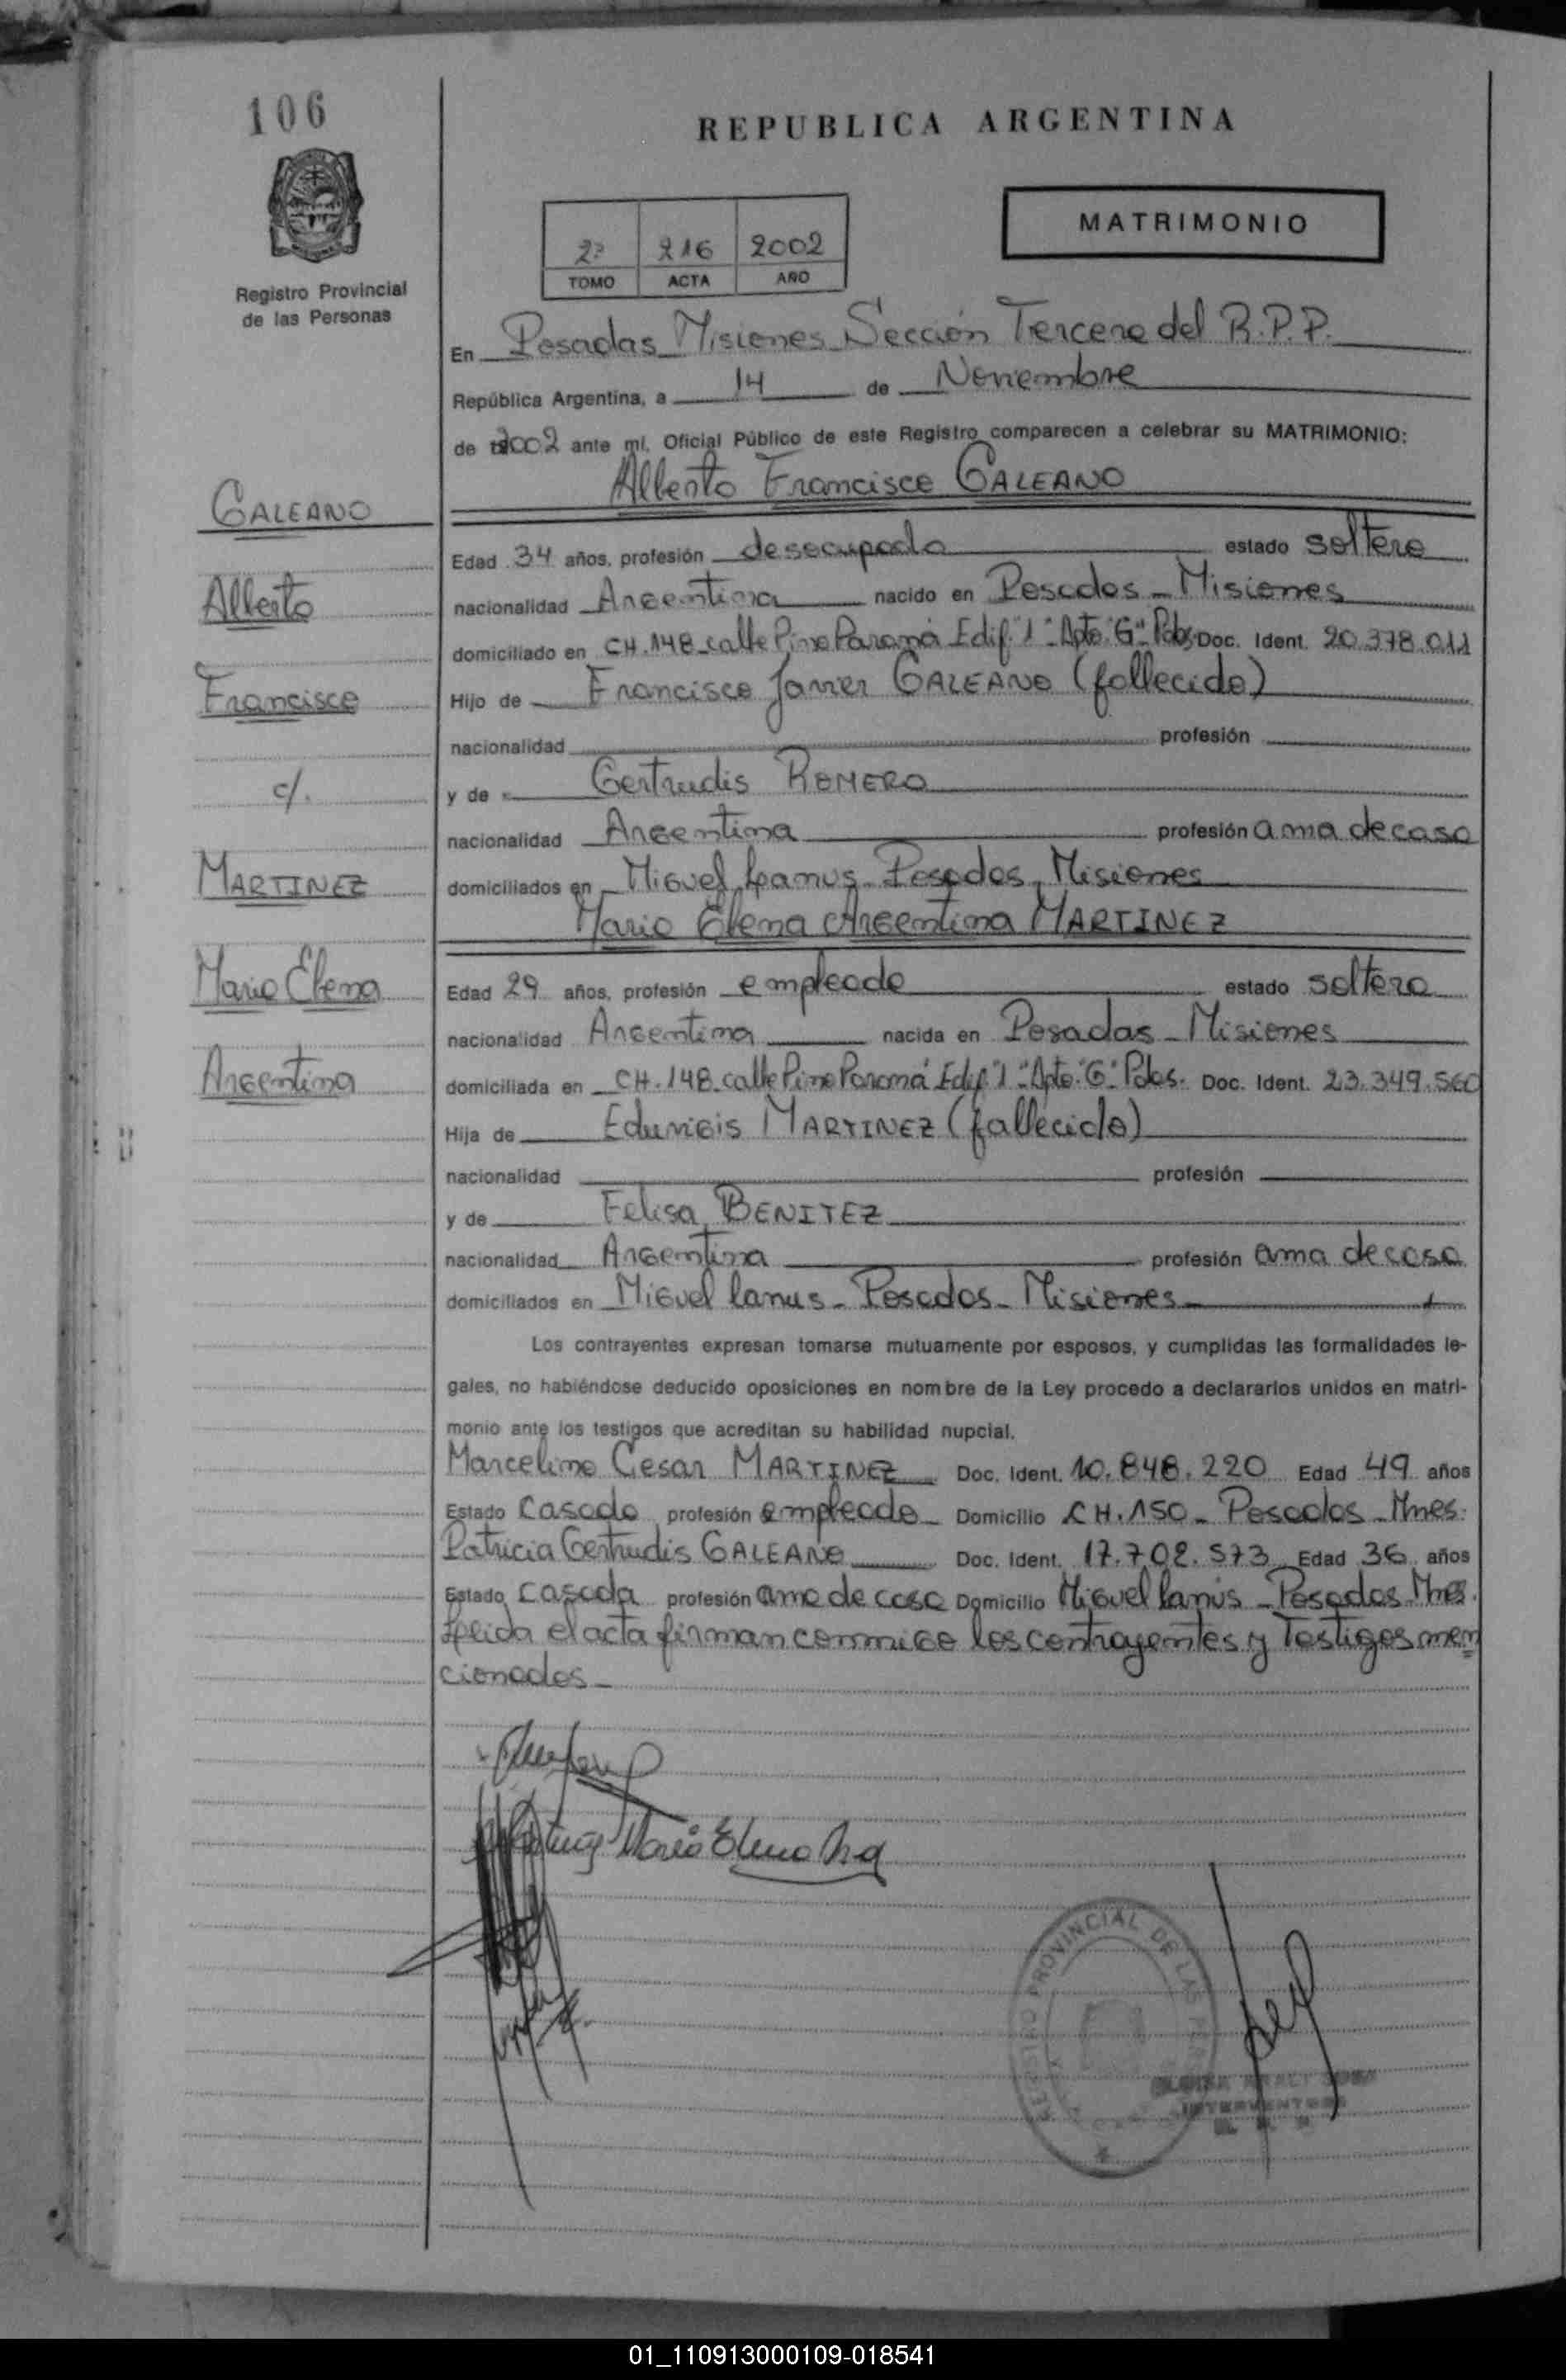 106
REPUBLICA ARGENTINA
MATRIMONIO
2º 216 2002
TOMO ACTA AÑO
Registro Provincial
de las Personas
En Posadas Misiones Sección Tercera del R.P.P.
República Argentina, a 14 de Noviembre
de 2002 ante mí, Oficial Público de este Registro comparecen a celebrar su MATRIMONIO:
Alberto Francisco GALEANO
GALEANO
Alberto
Francisco
c/.
MARTINEZ
Maria Elena
Argentina
Edad 34 años, profesión desocupado estado soltero
nacionalidad Argentina nacido en Posadas - Misiones
domiciliado en CH.148 - calle Pino Paraná Edif. "1" - Dpto. "G" - Pdas Doc. Ident. 20.378.011
Hijo de Francisco Javier GALEANO (fallecido)
nacionalidad profesión
y de Gertrudis ROMERO
nacionalidad Argentina profesión ama de casa
domiciliados en Miguel Lanus - Posadas - Misiones
Maria Elena Argentina MARTINEZ
Edad 29 años, profesión empleada estado soltera
nacionalidad Argentina nacida en Posadas - Misiones
domiciliada en CH.148 - calle Pino Paraná Edif "1" - Dpto. "G" Pdas. Doc. Ident. 23.349.560
Hija de Eduvigis MARTINEZ (fallecido)
nacionalidad profesión
y de Felisa BENITEZ
nacionalidad Argentina profesión ama de casa
domiciliados en Miguel lanus - Posadas - Misiones
Los contrayentes expresan tomarse mutuamente por esposos, y cumplidas las formalidades le-
gales, no habiéndose deducido oposiciones en nombre de la Ley procedo a declararlos unidos en matri-
monio ante los testigos que acreditan su habilidad nupcial.
Marcelino Cesar MARTINEZ Doc. Ident. 10.848.220 Edad 49 años
Estado Casado profesión empleado Domicilio CH.150 - Posadas - Mnes.
Patricia Gertrudis GALEANO Doc. Ident. 17.702.573 Edad 36 años
Estado Casada profesión ama de casa Domicilio Miguel Lanus - Posadas - Mnes.
Leida el acta firman conmigo los contrayentes y Testigos men
cionados -
Martinez María Elena Arg
REGISTRO PROVINCIAL DE LAS PERSONAS
01_110913000109-018541